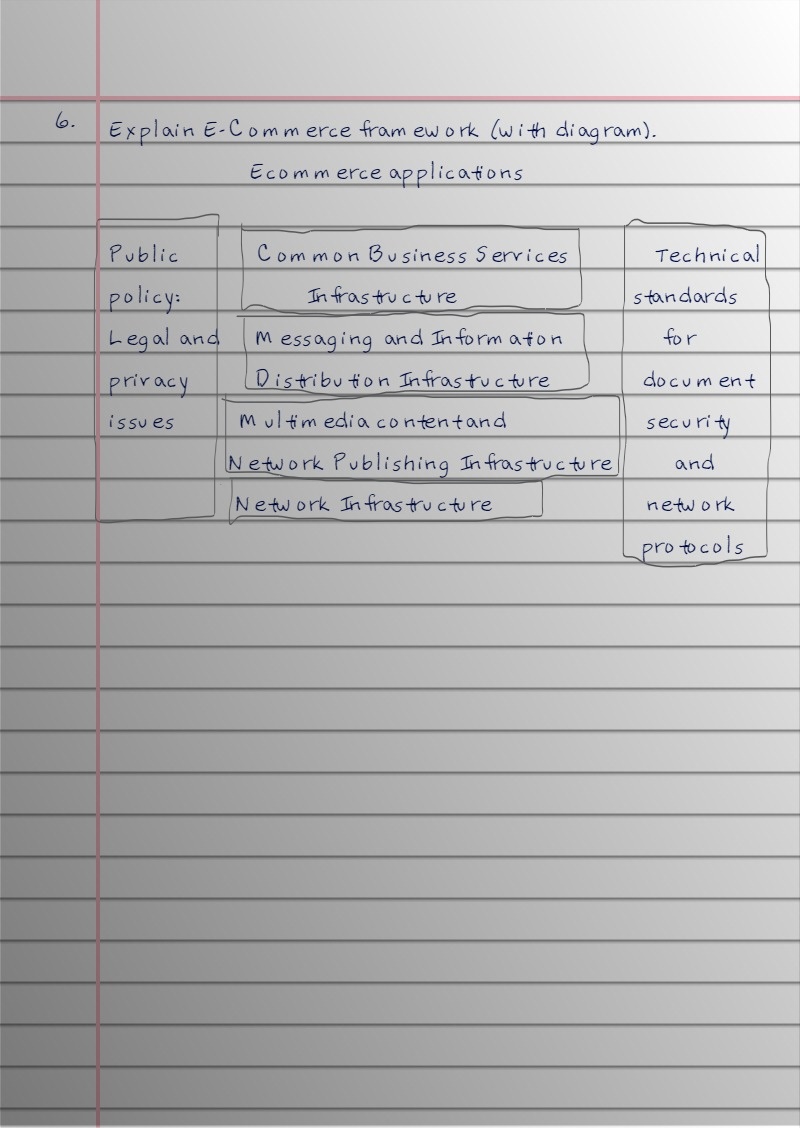 6. Explain E-Commerce framework (with diagram).
Ecommerce applications
Public
policy:
Legal and
privacy
issues
Common Business Services
Infrastructure
Messaging and Information
Distribution Infrastructure
Multimedia content and
Network Publishing Infrastructure
Network Infrastructure
Technical
standards
for
document
security
and
network
protocols